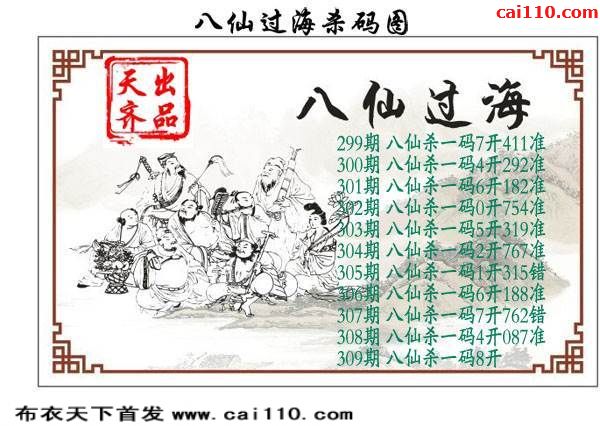 八仙过海杀码图
cai110.com
天齐
出品
八仙过海
299期 八仙杀一码7开411准
300期 八仙杀一码4开292准
301期 八仙杀一码6开182准
302期 八仙杀一码0开754准
303期 八仙杀一码5开319准
304期 八仙杀一码2开767准
305期 八仙杀一码1开315错
306期 八仙杀一码6开188准
307期 八仙杀一码7开762错
308期 八仙杀一码4开087准
309期 八仙杀一码8开
布衣天下首发 www.cai110.com